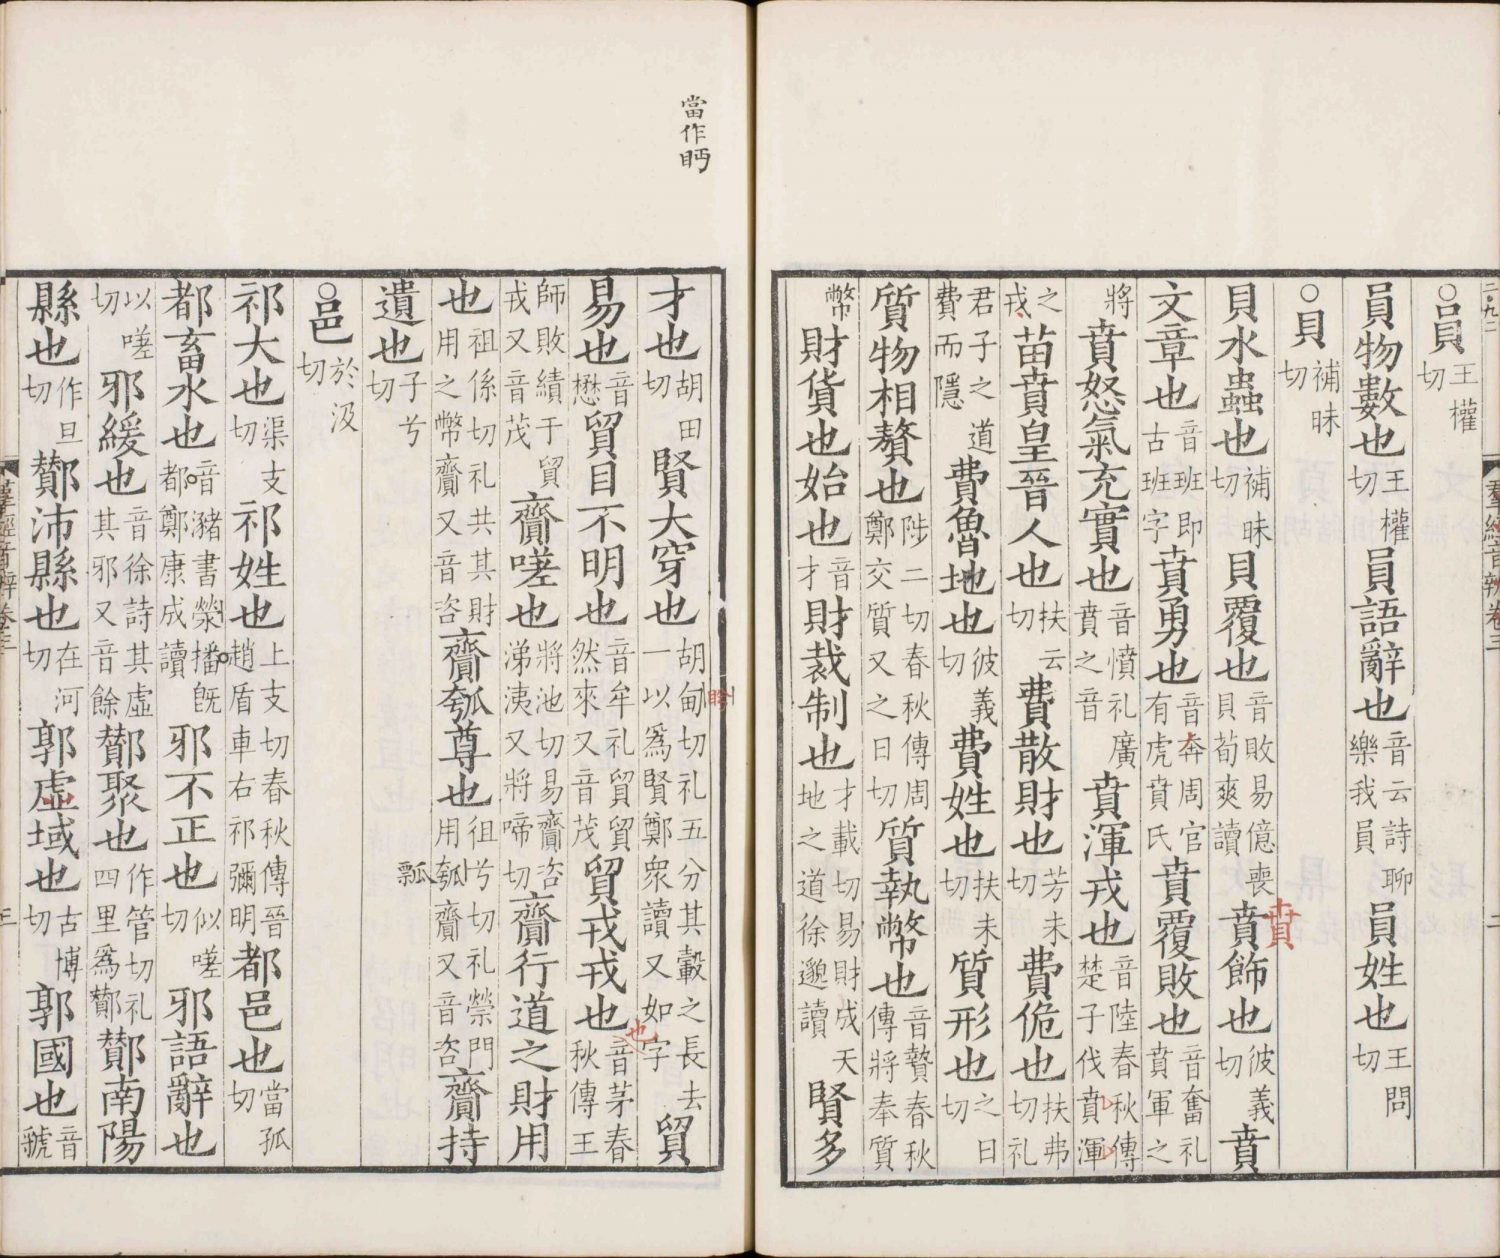 ○員王權切
員物數也王權切員語辭也音云詩聊樂我員員姓也王問切
○貝補昧切
貝水蟲也補昧切貝覆也音敗易億喪貝荀爽讀賁飾也彼義切賁
賁
文章也音班即古班字賁勇也音奔周官有虎賁氏賁覆敗也音奮礼賁軍之
將賁怒氣充實也音憤礼廣賁之音賁渾戎也音陸春秋傳楚子伐賁渾
之戎苗賁皇晉人也扶云切費散財也芳未切費佹也扶弗切礼
君子之道費而隱費魯地也彼義切費姓也扶未切質形也之日切
質物相贅也陟二切春秋傳周鄭交質又之日切質執幣也音贄春秋傳將奉質
幣財貨也始也音才財裁制也才載切易財成天地之道徐邈讀賢多
羣經音辨卷三
二
當作眄
才也胡田切賢大穿也胡甸切礼五分其轂之長去一以爲賢鄭衆讀又如字貿
易也音懋貿目不明也音牟礼貿貿然來又音茂貿戎戎也音茅春秋傳王
也
師敗績于貿戎又音茂齎嗟也將池切易齎咨涕洟又將啼切齎行道之財用
也祖係切礼共其財用之幣齎又音咨齎瓠尊也徂兮切礼禜門用瓠齎又音咨齎持
瓢
遺也子兮切
○邑於汲切
祁大也渠支切祁姓也上支切春秋傳晉趙盾車右祁彌明都邑也當孤切
都畜水也音瀦書滎播旣都鄭康成讀邪不正也似嗟切邪語辭也
以嗟切邪緩也音徐詩其虛其邪又音餘酇聚也作管切礼四里爲酇酇南陽
縣也作旦切酇沛縣也在河切郭虛域也古博切郭國也音虢